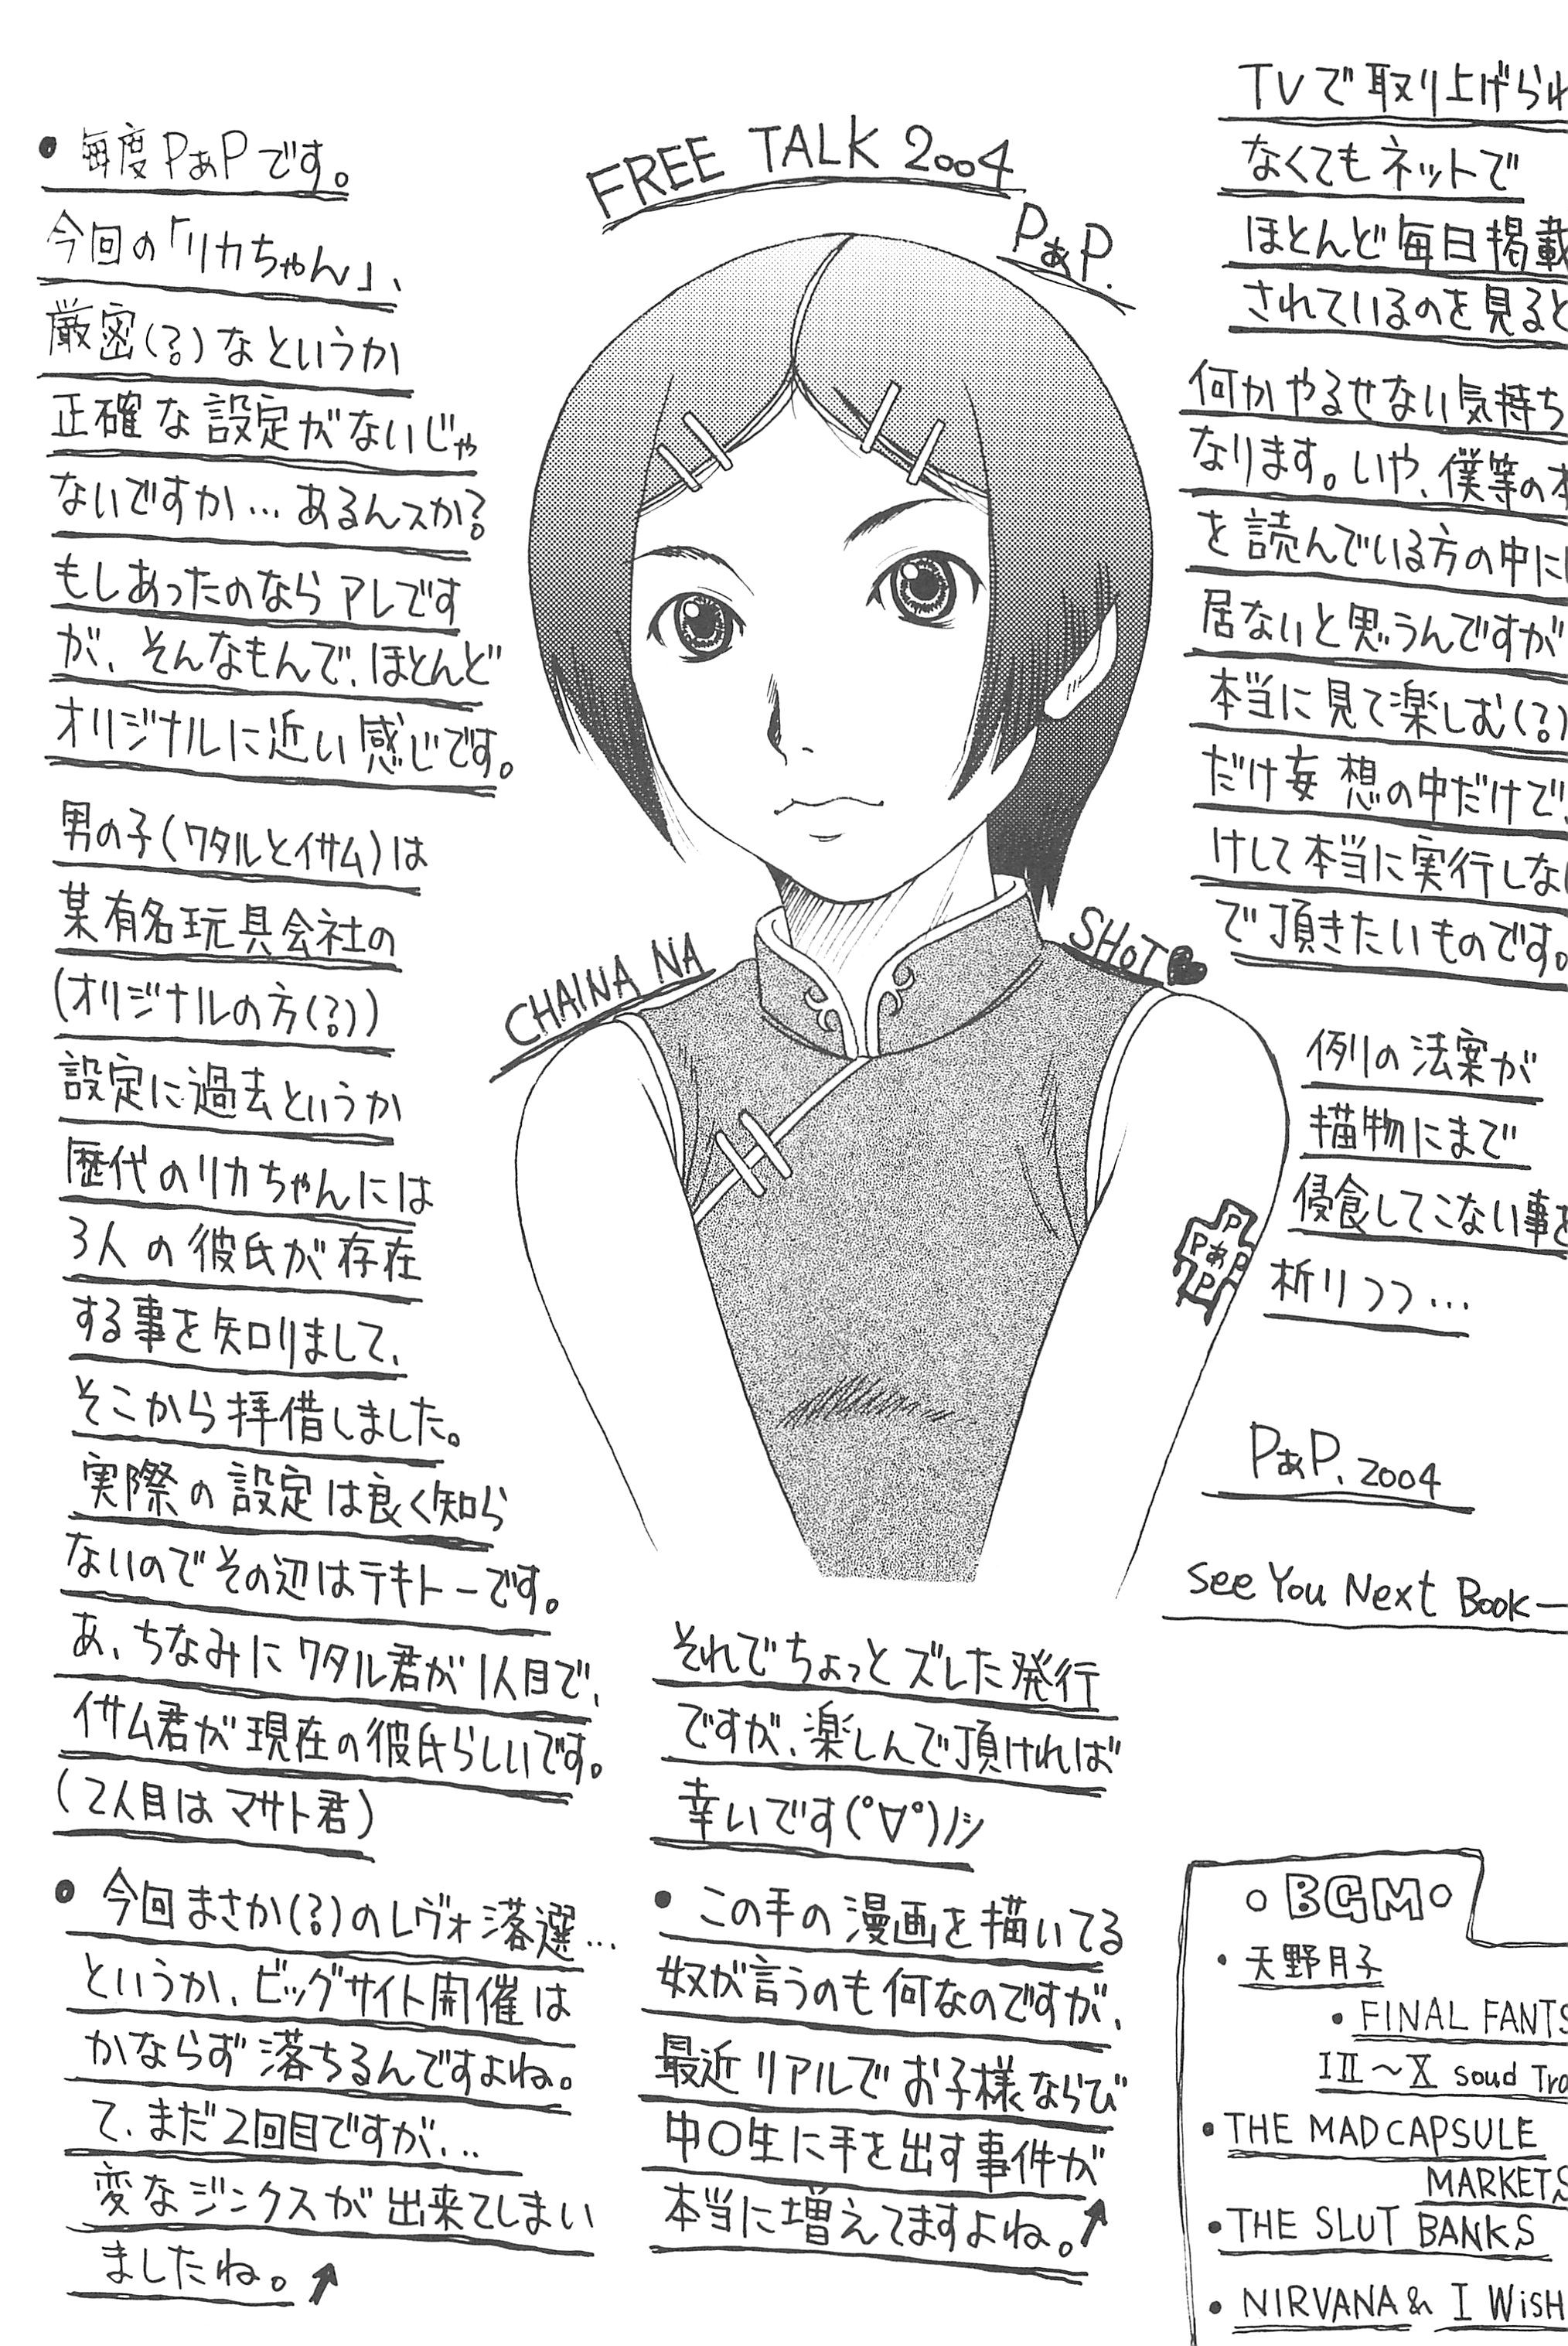 FREE TALK 2004
PぁP.
• 毎度PぁPです。
今回の「リカちゃん」、
厳密(?)なというか
正確な設定がないじゃ
ないですか…あるんスか?
もしあったのならアレです
が、そんなもんで、ほとんど
オリジナルに近い感じです。
男の子(ワタルとイサム)は
某有名玩具会社の
(オリジナルの方(?))
設定に過去というか
歴代のリカちゃんには
3人の彼氏が存在
する事を知りまして、
そこから拝借しました。
実際の設定は良く知ら
ないのでその辺はテキトーです。
あ、ちなみにワタル君が1人目で、
イサム君が現在の彼氏らしいです。
(2人目はマサト君)
• 今回まさか(?)のレヴォ落選…
というか、ビッグサイト開催は
かならず落ちるんですよね。
て、まだ2回目ですが…
変なジンクスが出来てしまい
ましたね。↗
それでちょっとズレた発行
ですが、楽しんで頂ければ
幸いです(°∀°)ノシ
• この手の漫画を描いてる
奴が言うのも何なのですが、
最近リアルでお子様ならび
中〇生に手を出す事件が
本当に増えてますよね。↗
TVで取り上げられ
なくてもネットで
ほとんど毎日掲載
されているのを見ると
何かやるせない気持ち
なります。いや、僕等の本
を読んでいる方の中に
居ないと思うんですが
本当に見て楽しむ(?)
だけ妄想の中だけで、
けして本当に実行しない
で頂きたいものです。
例の法案が
描物にまで
侵食してこない事を
祈りつつ…
PぁP. 2004
See You Next Book—
CHAINA NA
SHOT♥
P
PぁP
P
○BGM○
• 天野月子
• FINAL FANTS
I II～X soud Tra
• THE MAD CAPSULE
MARKETS
• THE SLUT BANKS
• NIRVANA & I WiSH